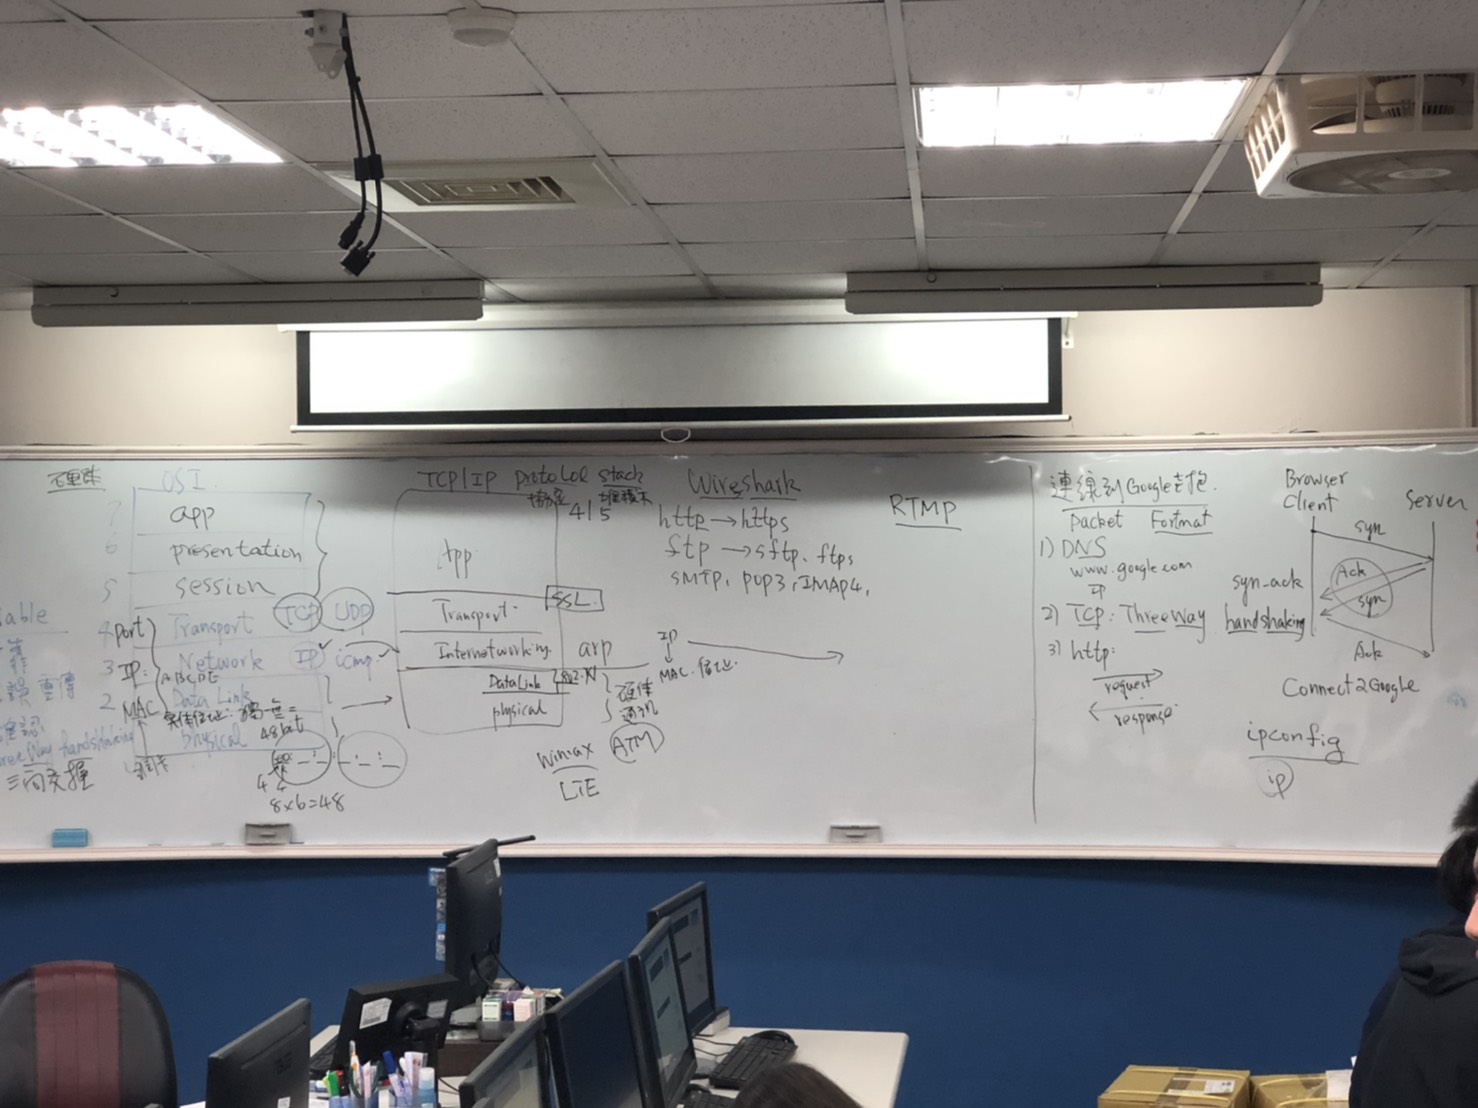 OSI
7 app
6 presentation
5 session
4 port Transport TCP UDP
3 IP: Network IP icmp
ABCDE
2 MAC Data Link
48bit
physical
Three Way handshaking
三向交握
8x6=48
TCP/IP Protolol Stack
協定
4/5
App
SSL
Transport
Internetworking arp
DataLink 802.X
physical
硬体
ATM
Wimax
LTE
Wireshark
http → https
ftp → sftp, ftps
SMTP, pop3, IMAP4,
IP
MAC
RTMP
連線到Google
packet Fortmat
1) DNS
www.google.com
IP
2) TCP: Three Way handshaking
3) http:
request
response
Browser
Client
Server
syn
syn-ack
Ack
syn
Ack
Connect2Google
ipconfig
ip